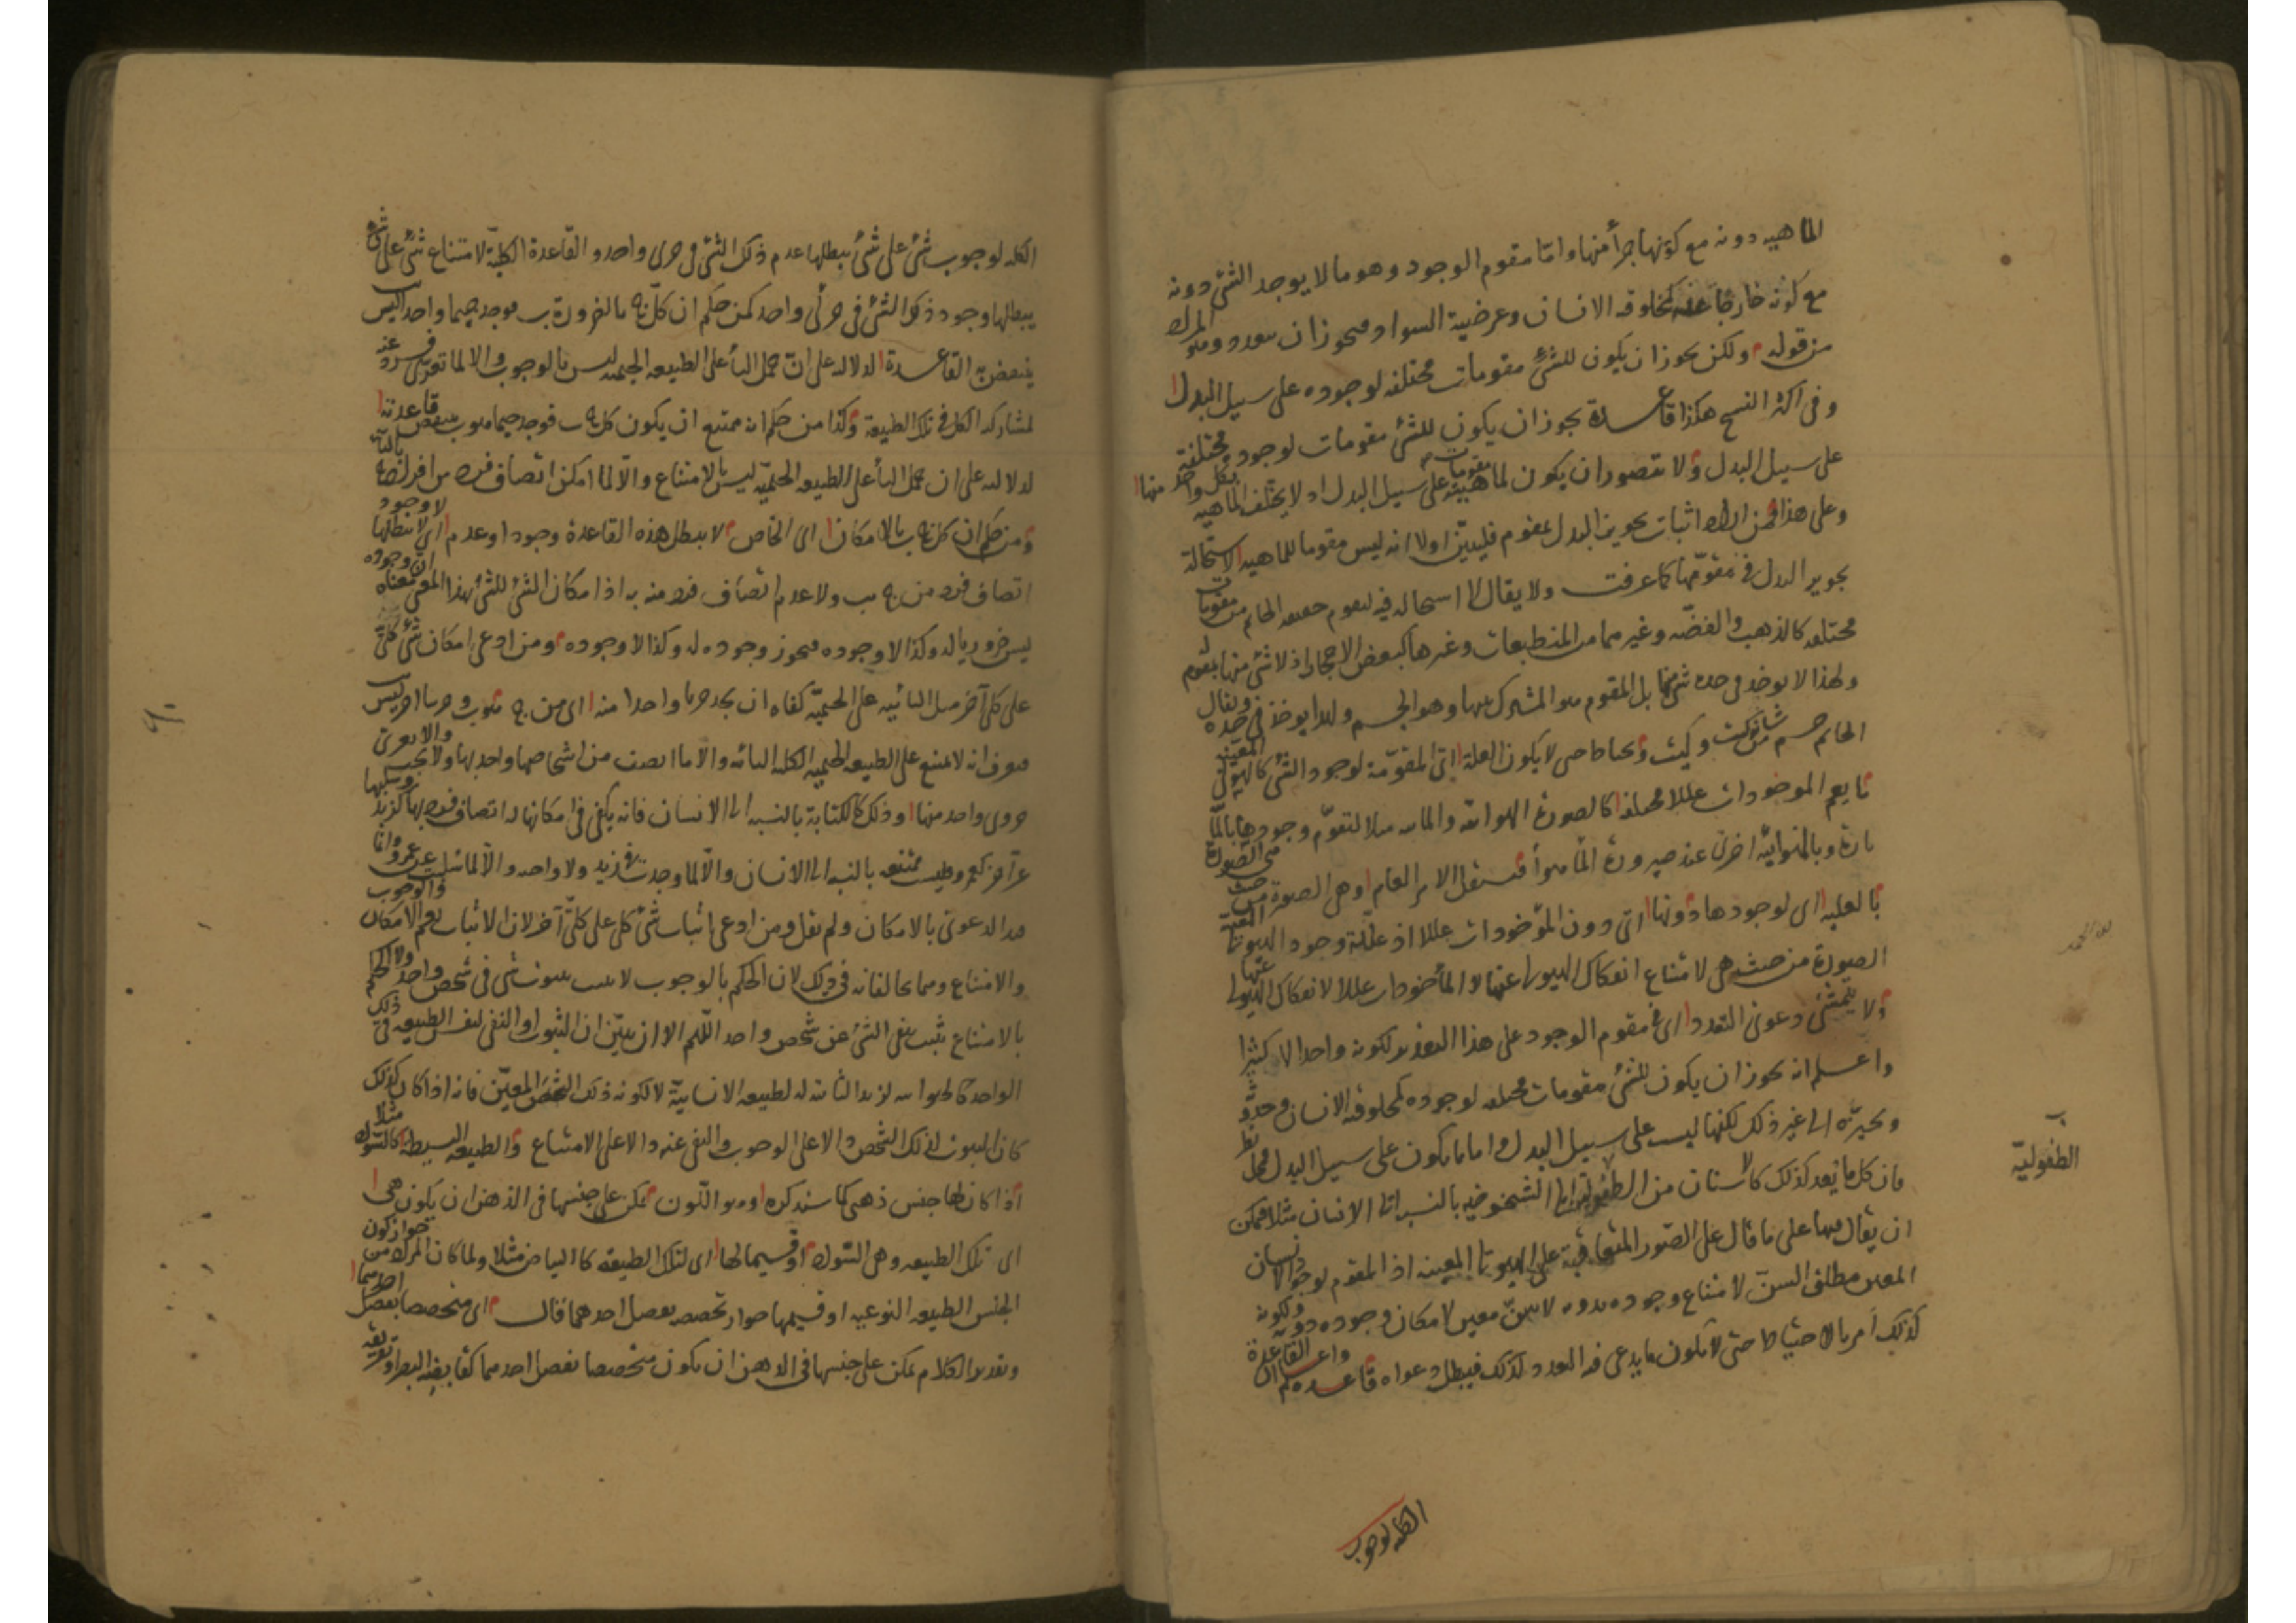 الماهيه دونه مع كونها جزأ منها واما مقوم الوجود وهو ما لا يوجد الشئ دونه
مع كونه خارجا عنه كمخلوقه الانسان وعرضية السواد فيجوز ان
من قوله ولكن يجوز ان يكون للشئ مقومات مختلفه لوجوده على سبيل البدل
وفى اكثر النسخ هكذا قاعدة يجوز ان يكون للشئ مقومات لوجوده مختلفة
على سبيل البدل ولا يتصور ان يكون لماهيته مقومات على سبيل البدل اذ لا يختلف الماهيه بكل واحد منها
وعلى هذا فمن اراد اثبات تجويز البدل لمقوم فليبين اولا انه ليس مقوما للماهيه لاستحالة
تجويز البدل فى مقومها كما عرفت ولا يقال لا استحاله فيه لتقوم حقيقه الخاتم من مقومات
مختلفه كالذهب والفضه وغيرهما من المنطبعات وغيرها كبعض الاحجار اذ لا شئ منها بمقوم له
ولهذا لا يوخذ فى حده شئ منها بل المقوم هو المشترك بينها وهو الجسم ولهذا يوخذ فى حده ويقال
الخاتم جسم من شانه كيت وكيت ويحتاط حتى لا يكون العلة اى المقومة لوجود الشئ كالهيولى المعينه
ما يعم الموخوذات عللا مختلفه كالصورة الهوائيه والمائيه مثلا لتقوم وجودها بالمائية
تارة وبالهوائية اخرى عند صيرورة الماء هواء فتستقل الامر العام وهى الصورة من حيث هى الصورة
بالعلية اى لوجودها دونها اى دون المأخوذات عللا اذ علة وجود الهيولى المعينة
الصورة من حيث هى لامتناع انفكاك الهيولى عنها لا المأخوذات عللا لانفكاك الهيولى عنها
ولا يتمشى دعوى التعدد اى فى مقوم الوجود على هذا التقدير لكونه واحدا لا كثيرا
واعلم انه يجوز ان يكون للشئ مقومات مختلفه لوجوده كمخلوقه الانسان وحدوثه
وتحيزه الى غير ذلك لكنها ليست على سبيل البدل واما ما يكون على سبيل البدل فمحل نظر
فان كل ما يعد كذلك كالاسنان من الطفولية الى الشيخوخيه بالنسبه الى الانسان مثلا فممكن
ان يقال فيها على ما قال على الصور المتعاقبة على الهيولى المعينه اذ المقوم لوجود الانسان
المعين مطلق السن لامتناع وجوده بدونه لا سن معين لامكان وجوده دونه ولكونه
كذلك امر بالاحتياط حتى لا يكون ما يدعى فيه التعدد كذلك فيبطل دعواه قاعدة واعلم ان القاعدة
الكليه لوجوب
ب
الطفوليّة
الكليه لوجوب شئ على شئ يبطلها عدم ذلك الشئ فى جزئى واحد والقاعدة الكلية لامتناع شئ على شئ
يبطلها وجود ذلك الشئ فى جزئى واحد كمن حكم ان كل ج بالضرورة ب فوجد جيما واحدا ليس ب
ينتقض به القاعدة لدلالته على ان حمل الباء على الطبيعه الجيميه ليس بالوجوب والا لما تعرى فرد عنه
لمشاركة الكل فى تلك الطبيعة وكذا من حكم انه ممتنع ان يكون كل ج ب فوجد جيما هو ب ينتقض قاعدته
لدلالته على ان حمل الباء على الطبيعه الجيميه ليس بالامتناع والا لما امكن اتصاف فرد من افرادها بالباء
ومن حكم ان كل ج ب بالامكان اى الخاص لا يبطل هذه القاعدة وجود او عدم اى لا يبطلها لا وجود
اتصاف فرد من ج ب ولا عدم اتصاف فرد منه به اذ امكان الشئ للشئ بهذا المعنى معناه ان وجوده
ليس ضروريا له وكذا لا وجوده فيجوز وجوده له وكذا لا وجوده ومن ادعى امكان شئ كلى
على كلى آخر مثل البائيه على الجيميه كفاه ان يجد جزئيا واحدا منه اى من ج هو ب وجزئيا آخر ليس ب
فيعرف انه لا يمتنع على الطبيعه الجيميه الكليه البائيه والا ما اتصف من اشخاصها واحد بها ولا يجب والا لا يعرى
جزوى واحد منها وذلك كالكتابة بالنسبه الى الانسان فانه يكفى فى امكانها له اتصاف فرد بها كزيد وسلبها
عن آخر كعمرو وليست ممتنعه بالنسبه الى الانسان والا لما وجدت فى زيد ولا واجبه والا لما سلبت عن عمرو وانما
قيد الدعوى بالامكان ولم يقل ومن ادعى اثبات شئ كلى على كلى آخر لان الاثبات يعم الامكان والوجوب
والامتناع وهما يخالفانه فى ذلك لان الحكم بالوجوب لا يثبت بثبوت شئ فى شخص واحد ولا الحكم
بالامتناع يثبت بنفى الشئ عن شخص واحد اللهم الا ان يبين ان الثبوت او النفى لنفس الطبيعه فى ذلك
الواحد كالحيوانيه لزيد الثابته له لطبيعه الانسانية لا لكونه ذلك الشخص المعين فانه اذا كان كذلك
كان الثبوت لذلك الشخص دالا على الوجوب والنفى عنه دالا على الامتناع والطبيعه البسيطه كالسواد مثلا
اذا كان لها جنس ذهنى كما سنذكره وهو اللون يمكن على جنسها فى الذهن ان يكون هى
اى تلك الطبيعه وهى السواد او قسيما لها اى لتلك الطبيعه كالبياض مثلا ولما كان المراد من جواز كون
الجنس الطبيعه النوعيه او قسيمها جواز تخصصه بفصل احدهما قال اى متخصصا بفصل احدهما
وتقدير الكلام يمكن على جنسها فى الذهن ان يكون متخصصا بفصل احدهما كقابضيه البصر او تفريقه